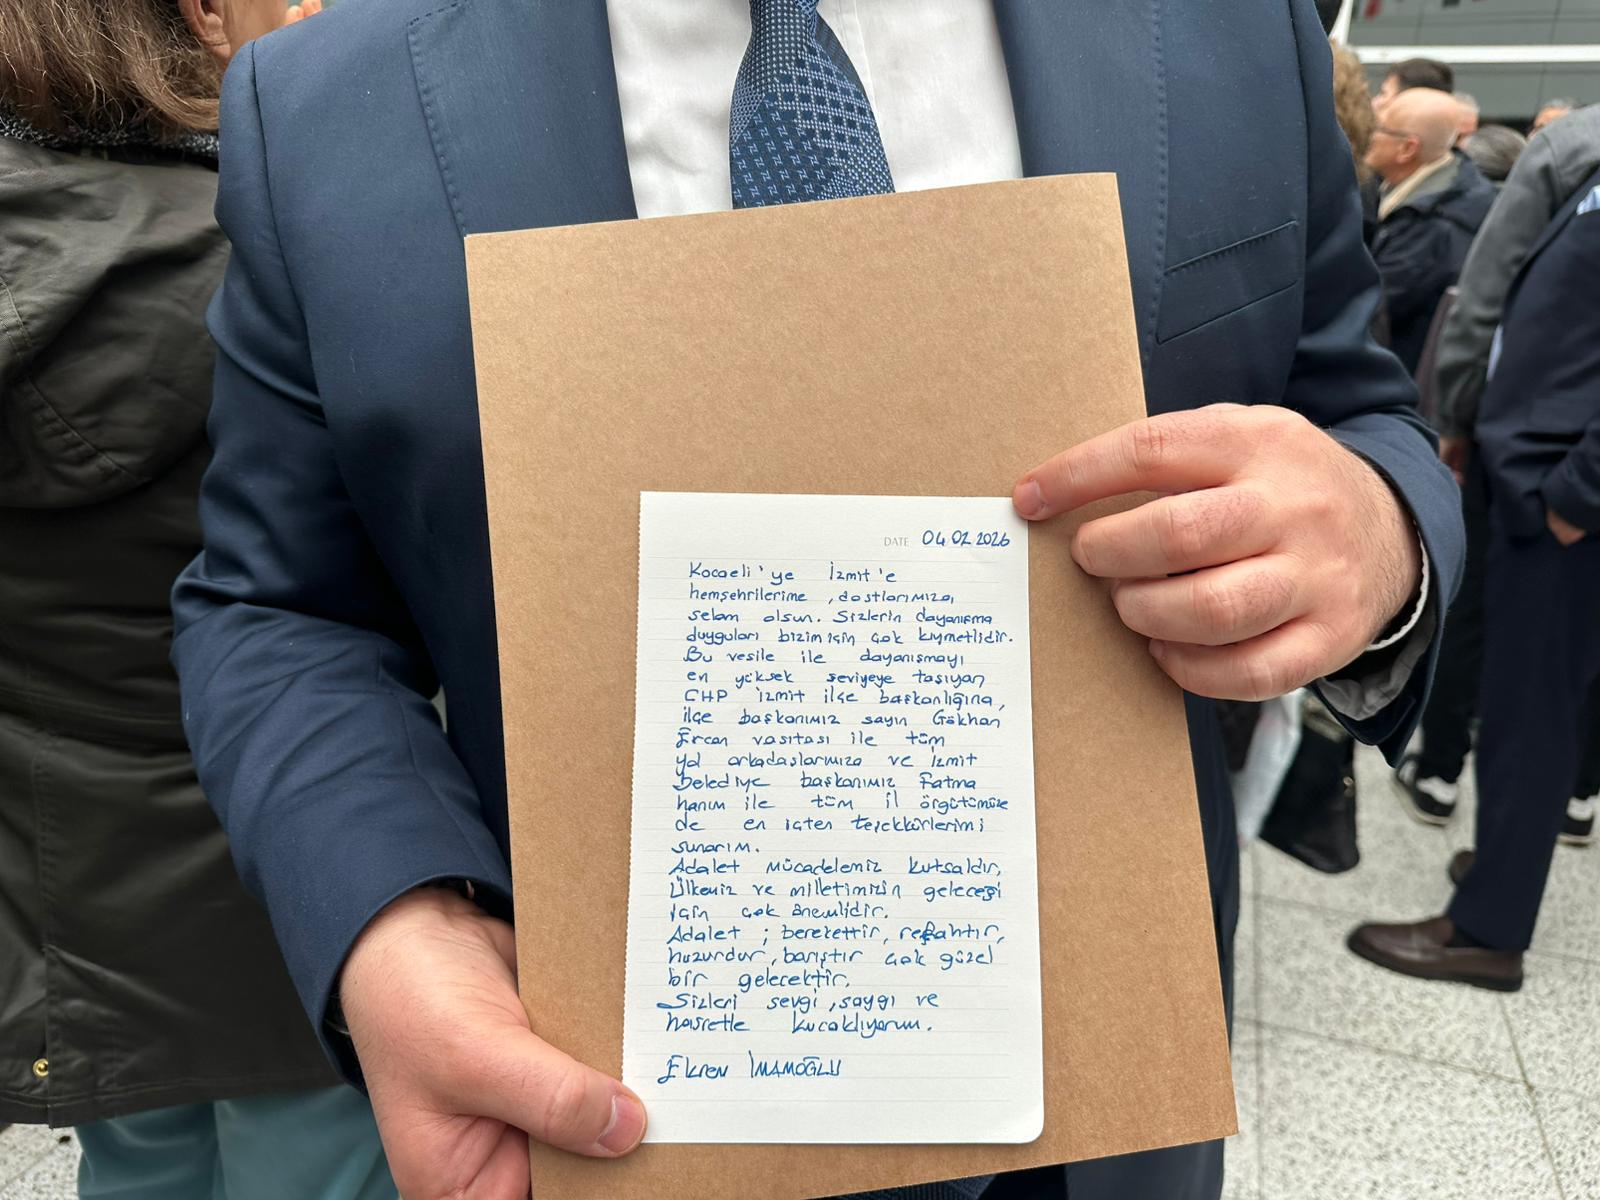 DATE 04.02.2026
Kocaeli'ye İzmit'e
hemşehrilerime, dostlarımıza,
selam olsun. Sizlerin dayanışma
duyguları bizim için çok kıymetlidir.
Bu vesile ile dayanışmayı
en yüksek seviyeye taşıyan
CHP İzmit ilçe başkanlığına,
ilçe başkanımız sayın Gökhan
Ercan vasıtası ile tüm
yol arkadaşlarımıza ve İzmit
Belediye başkanımız Fatma
hanım ile tüm il örgütümüze
de en içten teşekkürlerimi
sunarım.
Adalet mücadelemiz kutsaldır,
Ülkemiz ve milletimizin geleceği
için çok önemlidir.
Adalet ; berekettir, refahtır,
huzurdur, barıştır çok güzel
bir gelecektir.
Sizleri sevgi, saygı ve
hasretle kucaklıyorum.
Ekrem İMAMOĞLU